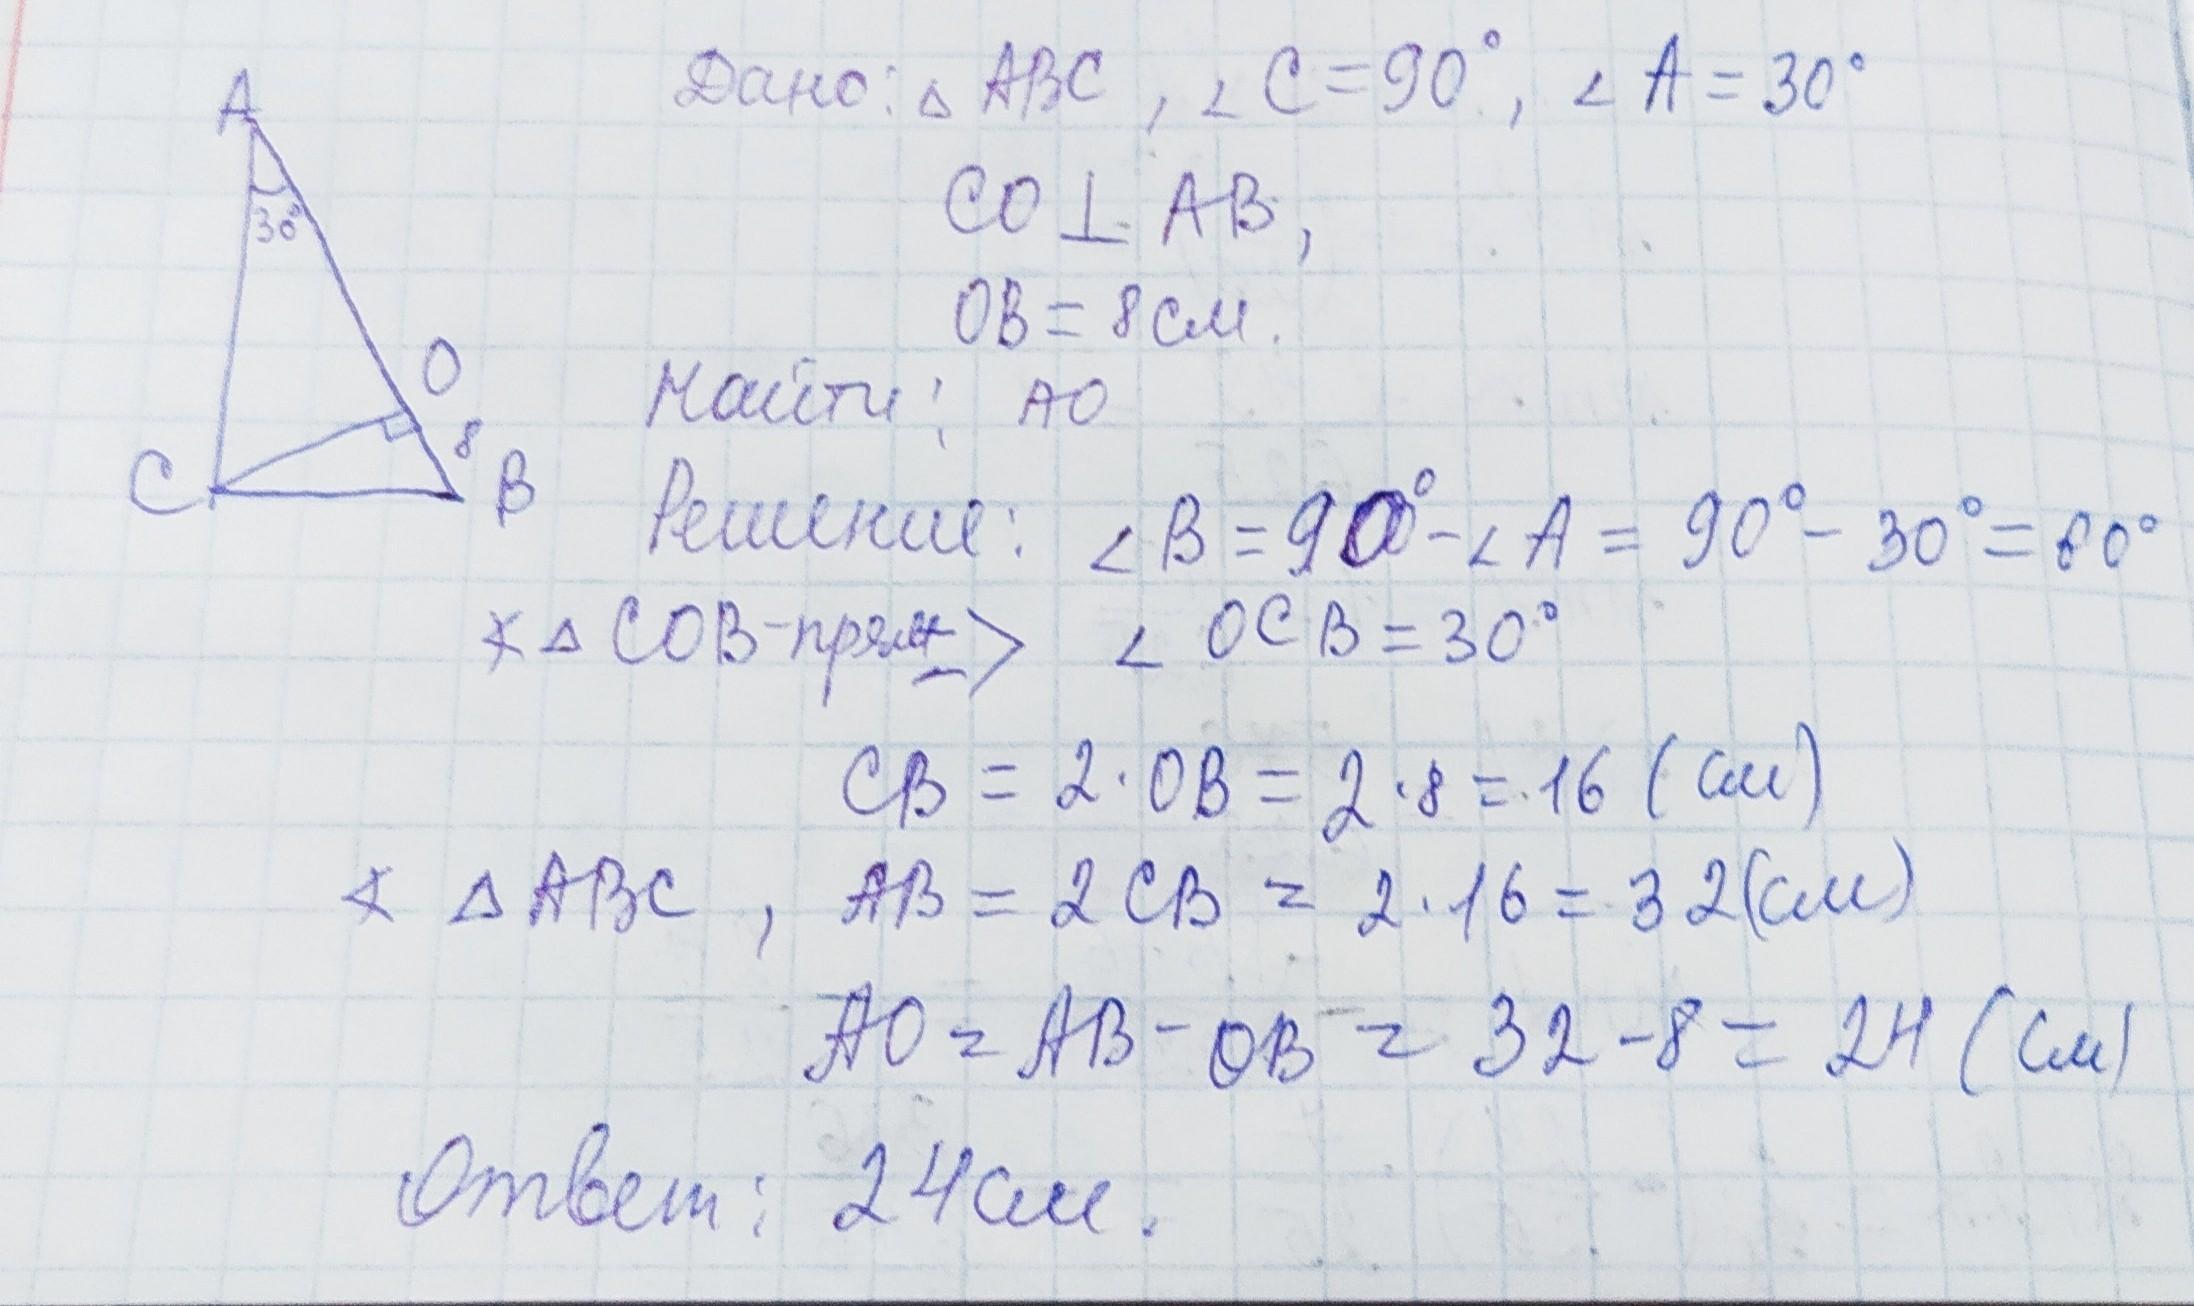 Дано: △ ABC, ∠ C = 90°, ∠ A = 30°
CO ⊥ AB,
OB = 8 см.
Найти: AO
A
30°
O
8
C
B
Решение: ∠ B = 90° - ∠ A = 90° - 30° = 60°
∠ △ COB - прям => ∠ OCB = 30°
CB = 2 · OB = 2 · 8 = 16 (см)
∠ △ ABC, AB = 2 CB = 2 · 16 = 32 (см)
AO = AB - OB = 32 - 8 = 24 (см)
Ответ: 24 см.